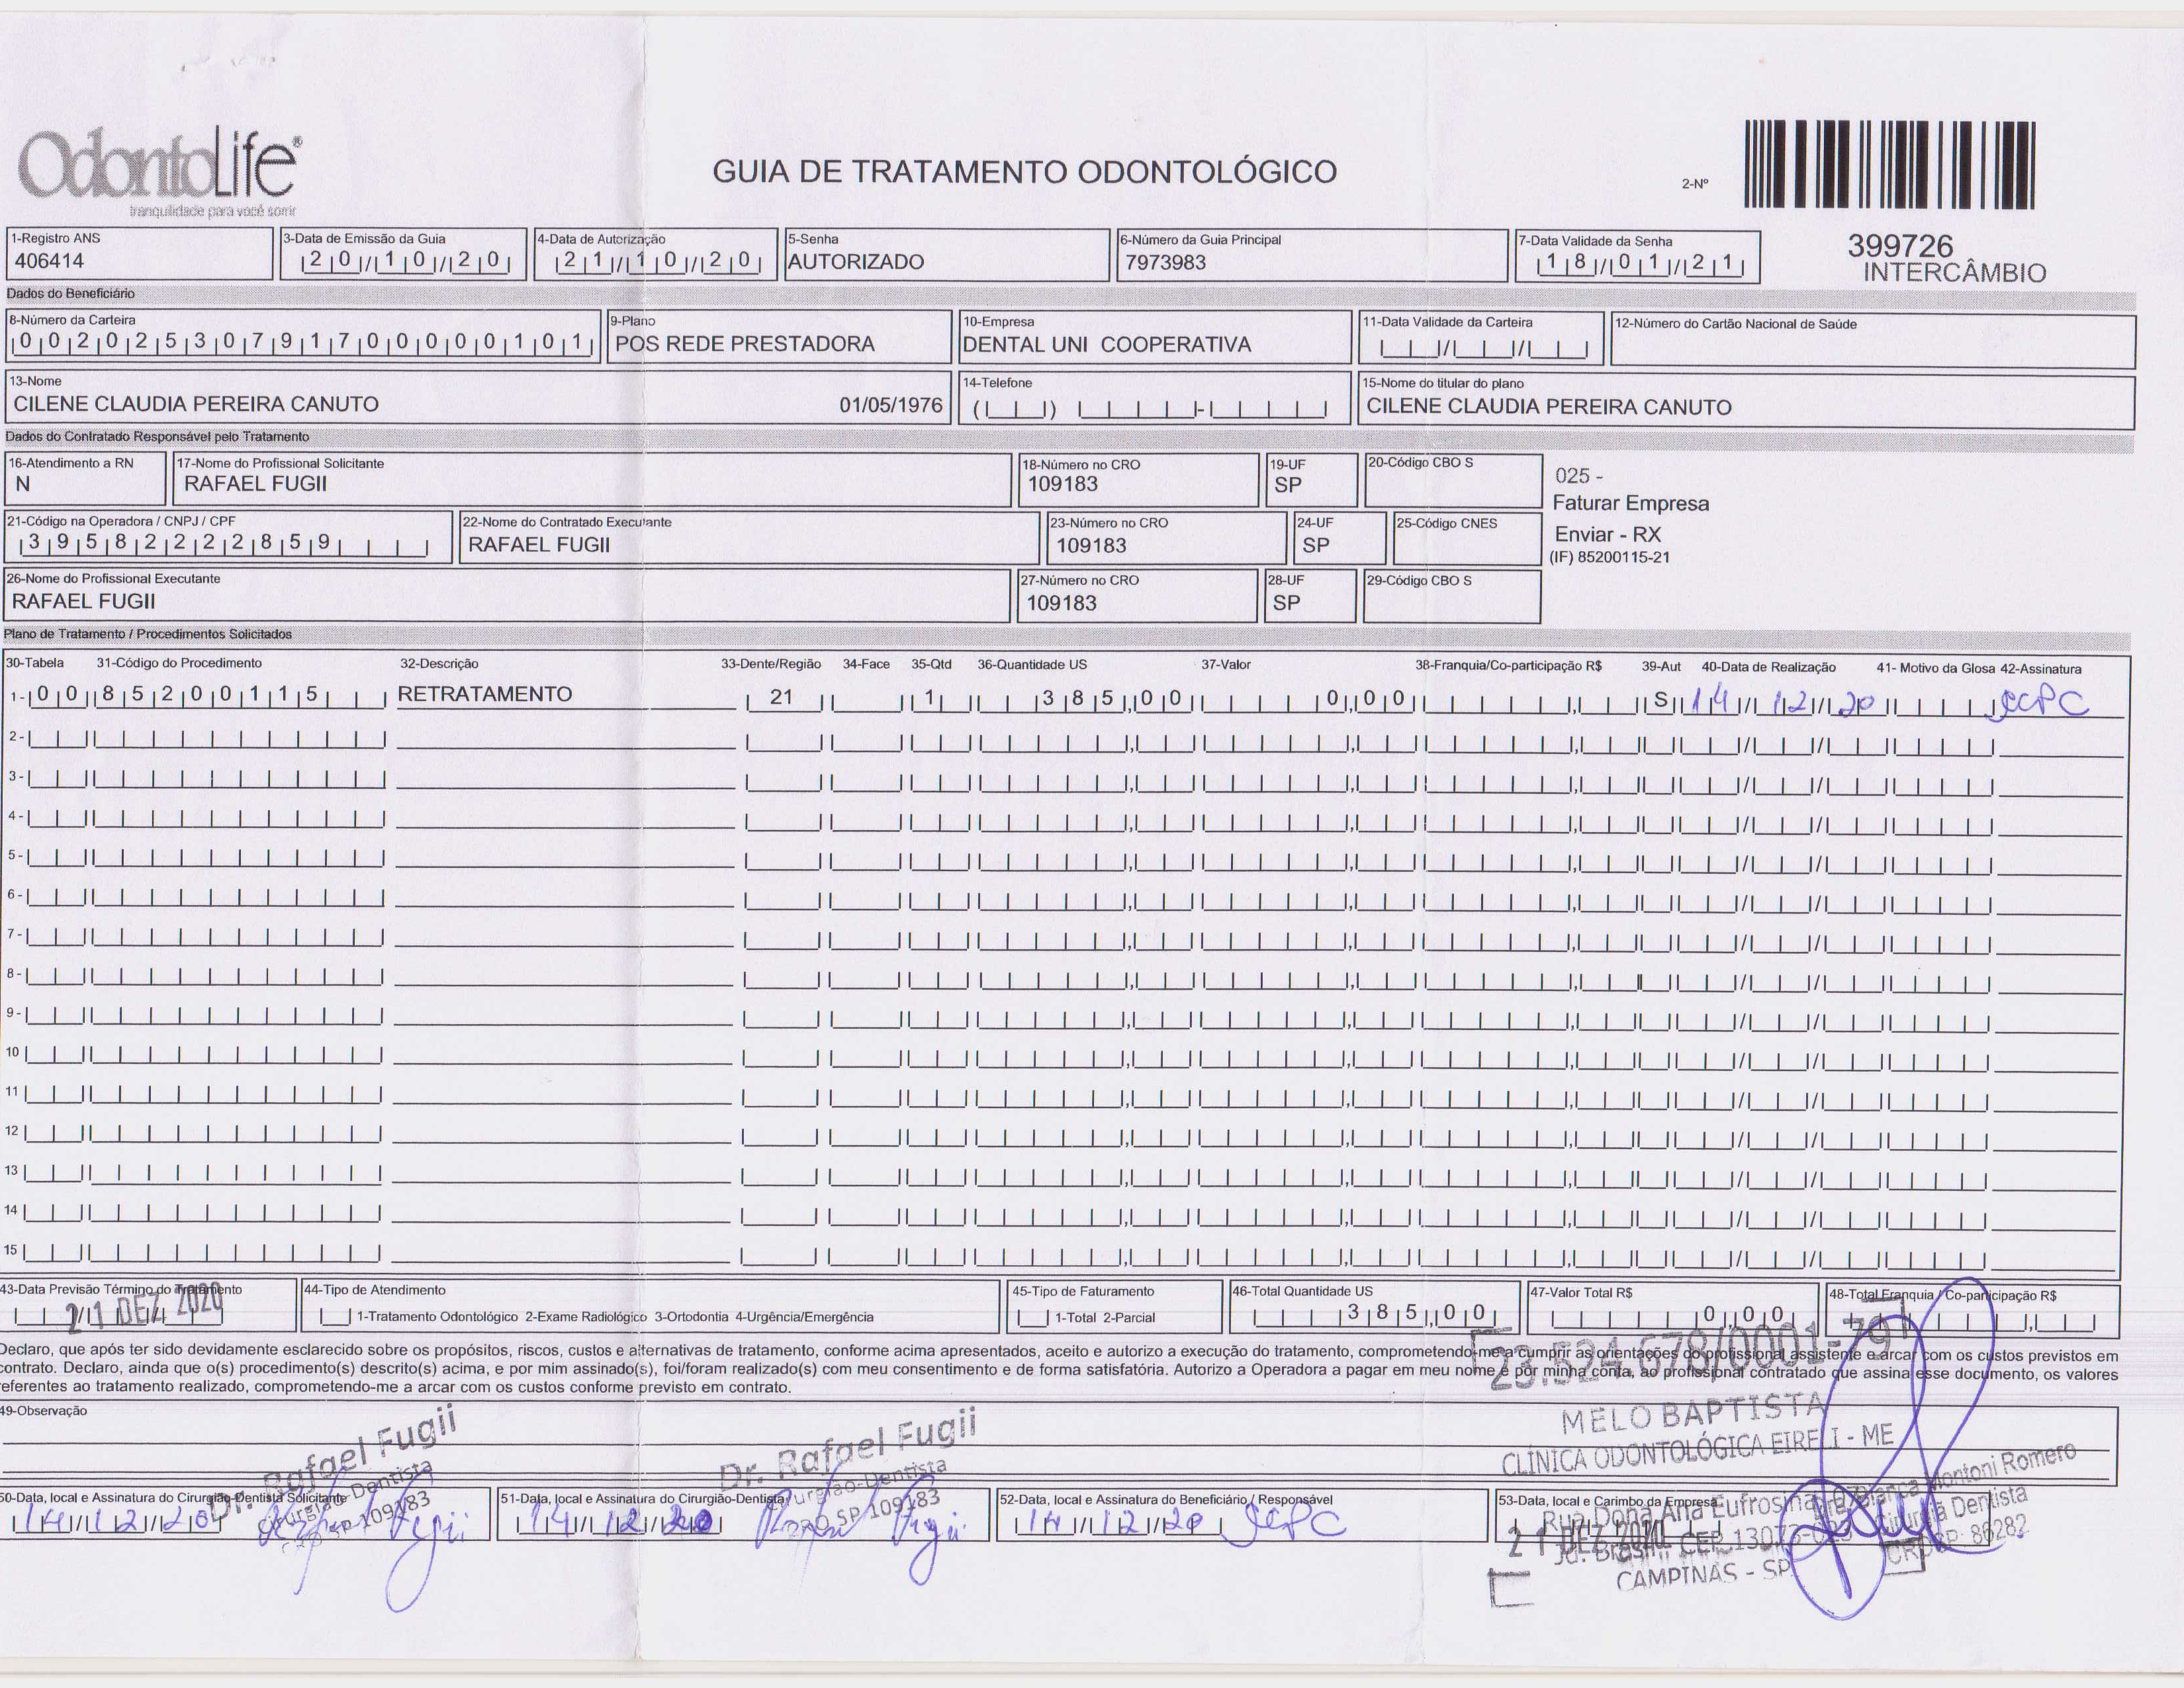 OdontoLife®
tranquilidade para você sorrir
GUIA DE TRATAMENTO ODONTOLÓGICO
2-Nº
399726
INTERCÂMBIO
1-Registro ANS
406414
3-Data de Emissão da Guia
20/10/20
4-Data de Autorização
21/10/20
5-Senha
AUTORIZADO
6-Número da Guia Principal
7973983
7-Data Validade da Senha
18/01/21
Dados do Beneficiário
8-Número da Carteira
00202530791700000101
9-Plano
POS REDE PRESTADORA
10-Empresa
DENTAL UNI COOPERATIVA
11-Data Validade da Carteira
12-Número do Cartão Nacional de Saúde
13-Nome
CILENE CLAUDIA PEREIRA CANUTO 01/05/1976
14-Telefone
15-Nome do titular do plano
CILENE CLAUDIA PEREIRA CANUTO
Dados do Contratado Responsável pelo Tratamento
16-Atendimento a RN
N
17-Nome do Profissional Solicitante
RAFAEL FUGII
18-Número no CRO
109183
19-UF
SP
20-Código CBO S
025 -
Faturar Empresa
Enviar - RX
(IF) 85200115-21
21-Código na Operadora / CNPJ / CPF
39582222859
22-Nome do Contratado Executante
RAFAEL FUGII
23-Número no CRO
109183
24-UF
SP
25-Código CNES
26-Nome do Profissional Executante
RAFAEL FUGII
27-Número no CRO
109183
28-UF
SP
29-Código CBO S
Plano de Tratamento / Procedimentos Solicitados
30-Tabela 31-Código do Procedimento 32-Descrição 33-Dente/Região 34-Face 35-Qtd 36-Quantidade US 37-Valor 38-Franquia/Co-participação R$ 39-Aut 40-Data de Realização 41- Motivo da Glosa 42-Assinatura
1- 00 85200115 RETRATAMENTO 21 1 385,00 0,00 S 14/12/20 CCPC
2-
3-
4-
5-
6-
7-
8-
9-
10
11
12
13
14
15
43-Data Previsão Término do Tratamento
21 DEZ 2020
44-Tipo de Atendimento
1-Tratamento Odontológico 2-Exame Radiológico 3-Ortodontia 4-Urgência/Emergência
45-Tipo de Faturamento
1-Total 2-Parcial
46-Total Quantidade US
385,00
47-Valor Total R$
0,00
48-Total Franquia / Co-participação R$
Declaro, que após ter sido devidamente esclarecido sobre os propósitos, riscos, custos e alternativas de tratamento, conforme acima apresentados, aceito e autorizo a execução do tratamento, comprometendo-me a cumprir as orientações do profissional assistente e arcar com os custos previstos em
contrato. Declaro, ainda que o(s) procedimento(s) descrito(s) acima, e por mim assinado(s), foi/foram realizado(s) com meu consentimento e de forma satisfatória. Autorizo a Operadora a pagar em meu nome e por minha conta, ao profissional contratado que assina esse documento, os valores
referentes ao tratamento realizado, comprometendo-me a arcar com os custos conforme previsto em contrato.
23.524.678/0001-79
49-Observação
MELO BAPTISTA
CLÍNICA ODONTOLÓGICA EIRELI - ME
Dr. Rafael Fugii
Cirurgião-Dentista
CRO SP 109183
Dr. Rafael Fugii
Cirurgião-Dentista
CRO SP 109183
50-Data, local e Assinatura do Cirurgião-Dentista Solicitante
14/12/20
51-Data, local e Assinatura do Cirurgião-Dentista
14/12/20
52-Data, local e Assinatura do Beneficiário / Responsável
14/12/20 CCPC
53-Data, local e Carimbo da Empresa
Rua Dona Ana Eufrosina
Jd. Brasil CEP 13073
CAMPINAS - SP
Montoni Romero
Cirurgiã Dentista
CRO SP: 86282